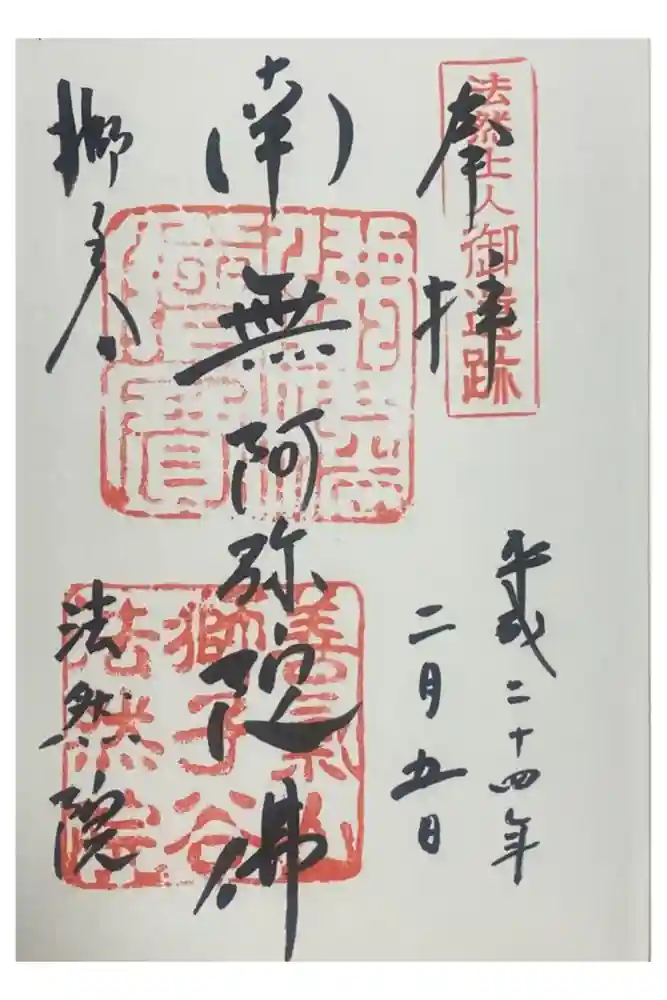 法然上人御遺跡
奉拝
平成二十四年
二月五日
南無阿弥陀佛
善氣山
獅子谷
法然院
法然院